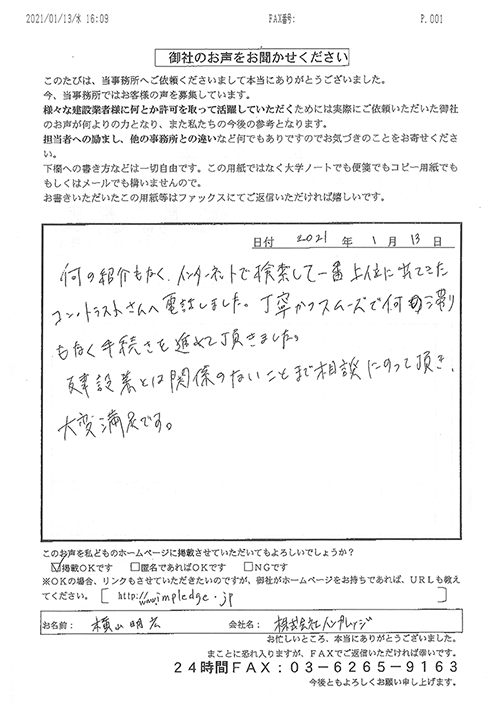 2021/01/13/水 16:09 FAX番号: P.001
御社のお声をお聞かせください
このたびは、当事務所へご依頼くださいまして本当にありがとうございました。
今、当事務所ではお客様の声を募集しています。
様々な建設業者様に何とか許可を取って活躍していただくためには実際にご依頼いただいた御社
のお声が何よりの力となり、また私たちの今後の参考となります。
担当者への励まし、他の事務所との違いなど何でもありですのでお気づきのことをお寄せくださ
い。
下欄への書き方などは一切自由です。この用紙ではなく大学ノートでも便箋でもコピー用紙でも
もしくはメールでも構いませんので。
お書きいただいたこの用紙等はファックスにてご返信いただければ嬉しいです。
日付 2021 年 1 月 13 日
何の紹介もなく、インターネットで検索して一番上位に出てきた
コントラストさんへ電話しました。丁寧かつスムーズで何の滞り
もなく手続きを進めて頂きました。
建設業とは関係のないことまで相談にのって頂き、
大変満足です。
このお声を私どものホームページに掲載させていただいてもよろしいでしょうか？
☑掲載OKです □匿名であればOKです □NGです
※OKの場合、リンクもさせていただきたいのですが、御社がホームページをお持ちであれば、URLも教え
てください。[ http://www.impledge.jp ]
お名前： 横山明広 会社名： 株式会社インプレッジ
お忙しいところ、本当にありがとうございました。
まことに恐れ入りますが、FAXでご返信いただければ幸いです。
24時間FAX：03-6265-9163
今後ともよろしくお願い申し上げます。